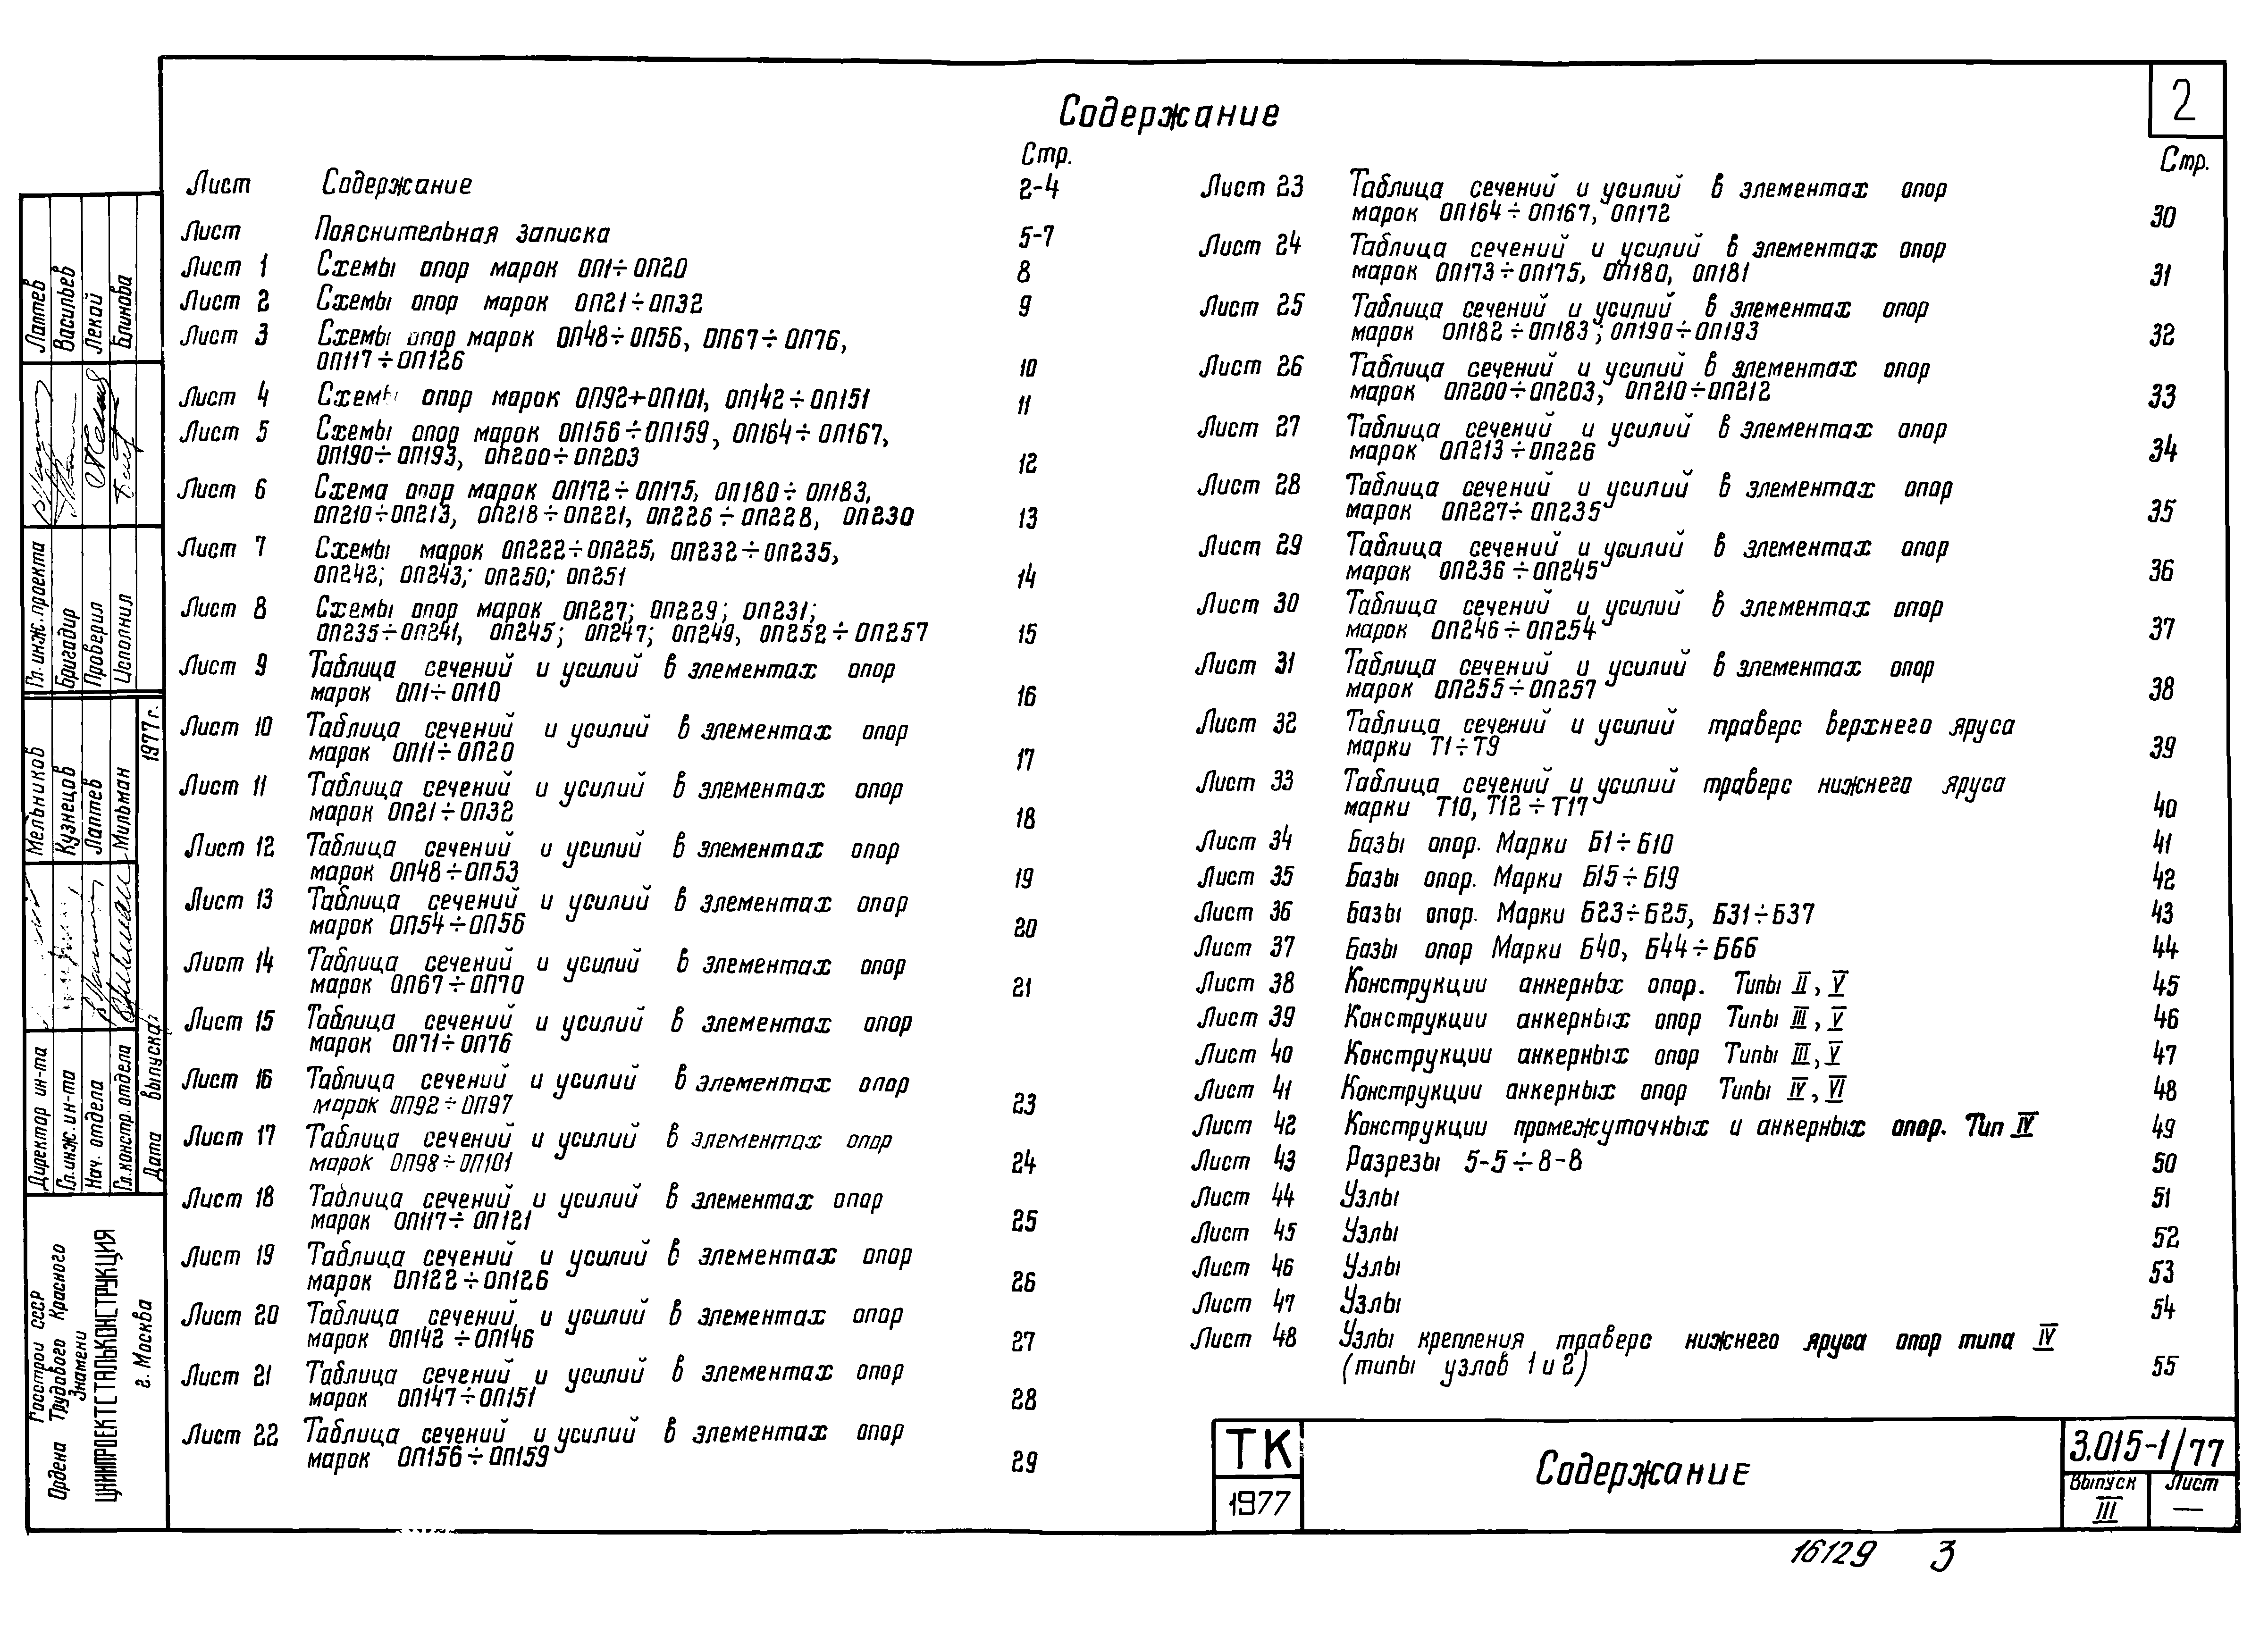 Содержание
2
Стр.
Лист Содержание 2-4
Лист Пояснительная записка 5-7
Лист 1 Схемы опор марок ОП1÷ОП20 8
Лист 2 Схемы опор марок ОП21÷ОП32 9
Лист 3 Схемы опор марок ОП48÷ОП56, ОП67÷ОП76,
ОП117÷ОП126 10
Лист 4 Схемы опор марок ОП92÷ОП101, ОП142÷ОП151 11
Лист 5 Схемы опор марок ОП156÷ОП159, ОП164÷ОП167,
ОП190÷ОП193, ОП200÷ОП203 12
Лист 6 Схема опор марок ОП172÷ОП175, ОП180÷ОП183,
ОП210÷ОП213, ОП218÷ОП221, ОП226÷ОП228, ОП230 13
Лист 7 Схемы марок ОП222÷ОП225, ОП232÷ОП235,
ОП242; ОП243; ОП250; ОП251 14
Лист 8 Схемы опор марок ОП227; ОП229; ОП231;
ОП235÷ОП241, ОП245; ОП247; ОП249, ОП252÷ОП257 15
Лист 9 Таблица сечений и усилий в элементах опор
марок ОП1÷ОП10 16
Лист 10 Таблица сечений и усилий в элементах опор
марок ОП11÷ОП20 17
Лист 11 Таблица сечений и усилий в элементах опор
марок ОП21÷ОП32 18
Лист 12 Таблица сечений и усилий в элементах опор
марок ОП48÷ОП53 19
Лист 13 Таблица сечений и усилий в элементах опор
марок ОП54÷ОП56 20
Лист 14 Таблица сечений и усилий в элементах опор
марок ОП67÷ОП70 21
Лист 15 Таблица сечений и усилий в элементах опор
марок ОП71÷ОП76
Лист 16 Таблица сечений и усилий в элементах опор
марок ОП92÷ОП97 23
Лист 17 Таблица сечений и усилий в элементах опор
марок ОП98÷ОП101 24
Лист 18 Таблица сечений и усилий в элементах опор
марок ОП117÷ОП121 25
Лист 19 Таблица сечений и усилий в элементах опор
марок ОП122÷ОП126 26
Лист 20 Таблица сечений и усилий в элементах опор
марок ОП142÷ОП146 27
Лист 21 Таблица сечений и усилий в элементах опор
марок ОП147÷ОП151 28
Лист 22 Таблица сечений и усилий в элементах опор
марок ОП156÷ОП159 29
Стр.
Лист 23 Таблица сечений и усилий в элементах опор
марок ОП164÷ОП167, ОП172 30
Лист 24 Таблица сечений и усилий в элементах опор
марок ОП173÷ОП175, ОП180, ОП181 31
Лист 25 Таблица сечений и усилий в элементах опор
марок ОП182÷ОП183; ОП190÷ОП193 32
Лист 26 Таблица сечений и усилий в элементах опор
марок ОП200÷ОП203, ОП210÷ОП212 33
Лист 27 Таблица сечений и усилий в элементах опор
марок ОП213÷ОП226 34
Лист 28 Таблица сечений и усилий в элементах опор
марок ОП227÷ОП235 35
Лист 29 Таблица сечений и усилий в элементах опор
марок ОП236÷ОП245 36
Лист 30 Таблица сечений и усилий в элементах опор
марок ОП246÷ОП254 37
Лист 31 Таблица сечений и усилий в элементах опор
марок ОП255÷ОП257 38
Лист 32 Таблица сечений и усилий траверс верхнего яруса
марки Т1÷Т9 39
Лист 33 Таблица сечений и усилий траверс нижнего яруса
марки Т10, Т12÷Т17 40
Лист 34 Базы опор. Марки Б1÷Б10 41
Лист 35 Базы опор. Марки Б15÷Б19 42
Лист 36 Базы опор. Марки Б23÷Б25, Б31÷Б37 43
Лист 37 Базы опор Марки Б40, Б44÷Б66 44
Лист 38 Конструкции анкерных опор. Типы II, V 45
Лист 39 Конструкции анкерных опор Типы III, V 46
Лист 40 Конструкции анкерных опор Типы III, V 47
Лист 41 Конструкции анкерных опор Типы IV, VI 48
Лист 42 Конструкции промежуточных и анкерных опор. Тип IV 49
Лист 43 Разрезы 5-5÷8-8 50
Лист 44 Узлы 51
Лист 45 Узлы 52
Лист 46 Узлы 53
Лист 47 Узлы 54
Лист 48 Узлы крепления траверс нижнего яруса опор типа IV
(типы узлов 1 и 2) 55
ТК
1977
Содержание
3.015-1/77
Выпуск
III
Лист
—
16129 3
Гл. инж. проекта Лаптев
Бригадир Васильев
Проверил Лекай
Исполнил Блинова
Директор ин-та Мельников
Гл. инж. ин-та Кузнецов
Нач. отдела Лаптев
Гл. констр. отдела Мильман
Дата выпуска 1977г.
Госстрой СССР
Ордена Трудового Красного
Знамени
ЦНИИПРОЕКТСТАЛЬКОНСТРУКЦИЯ
г. Москва